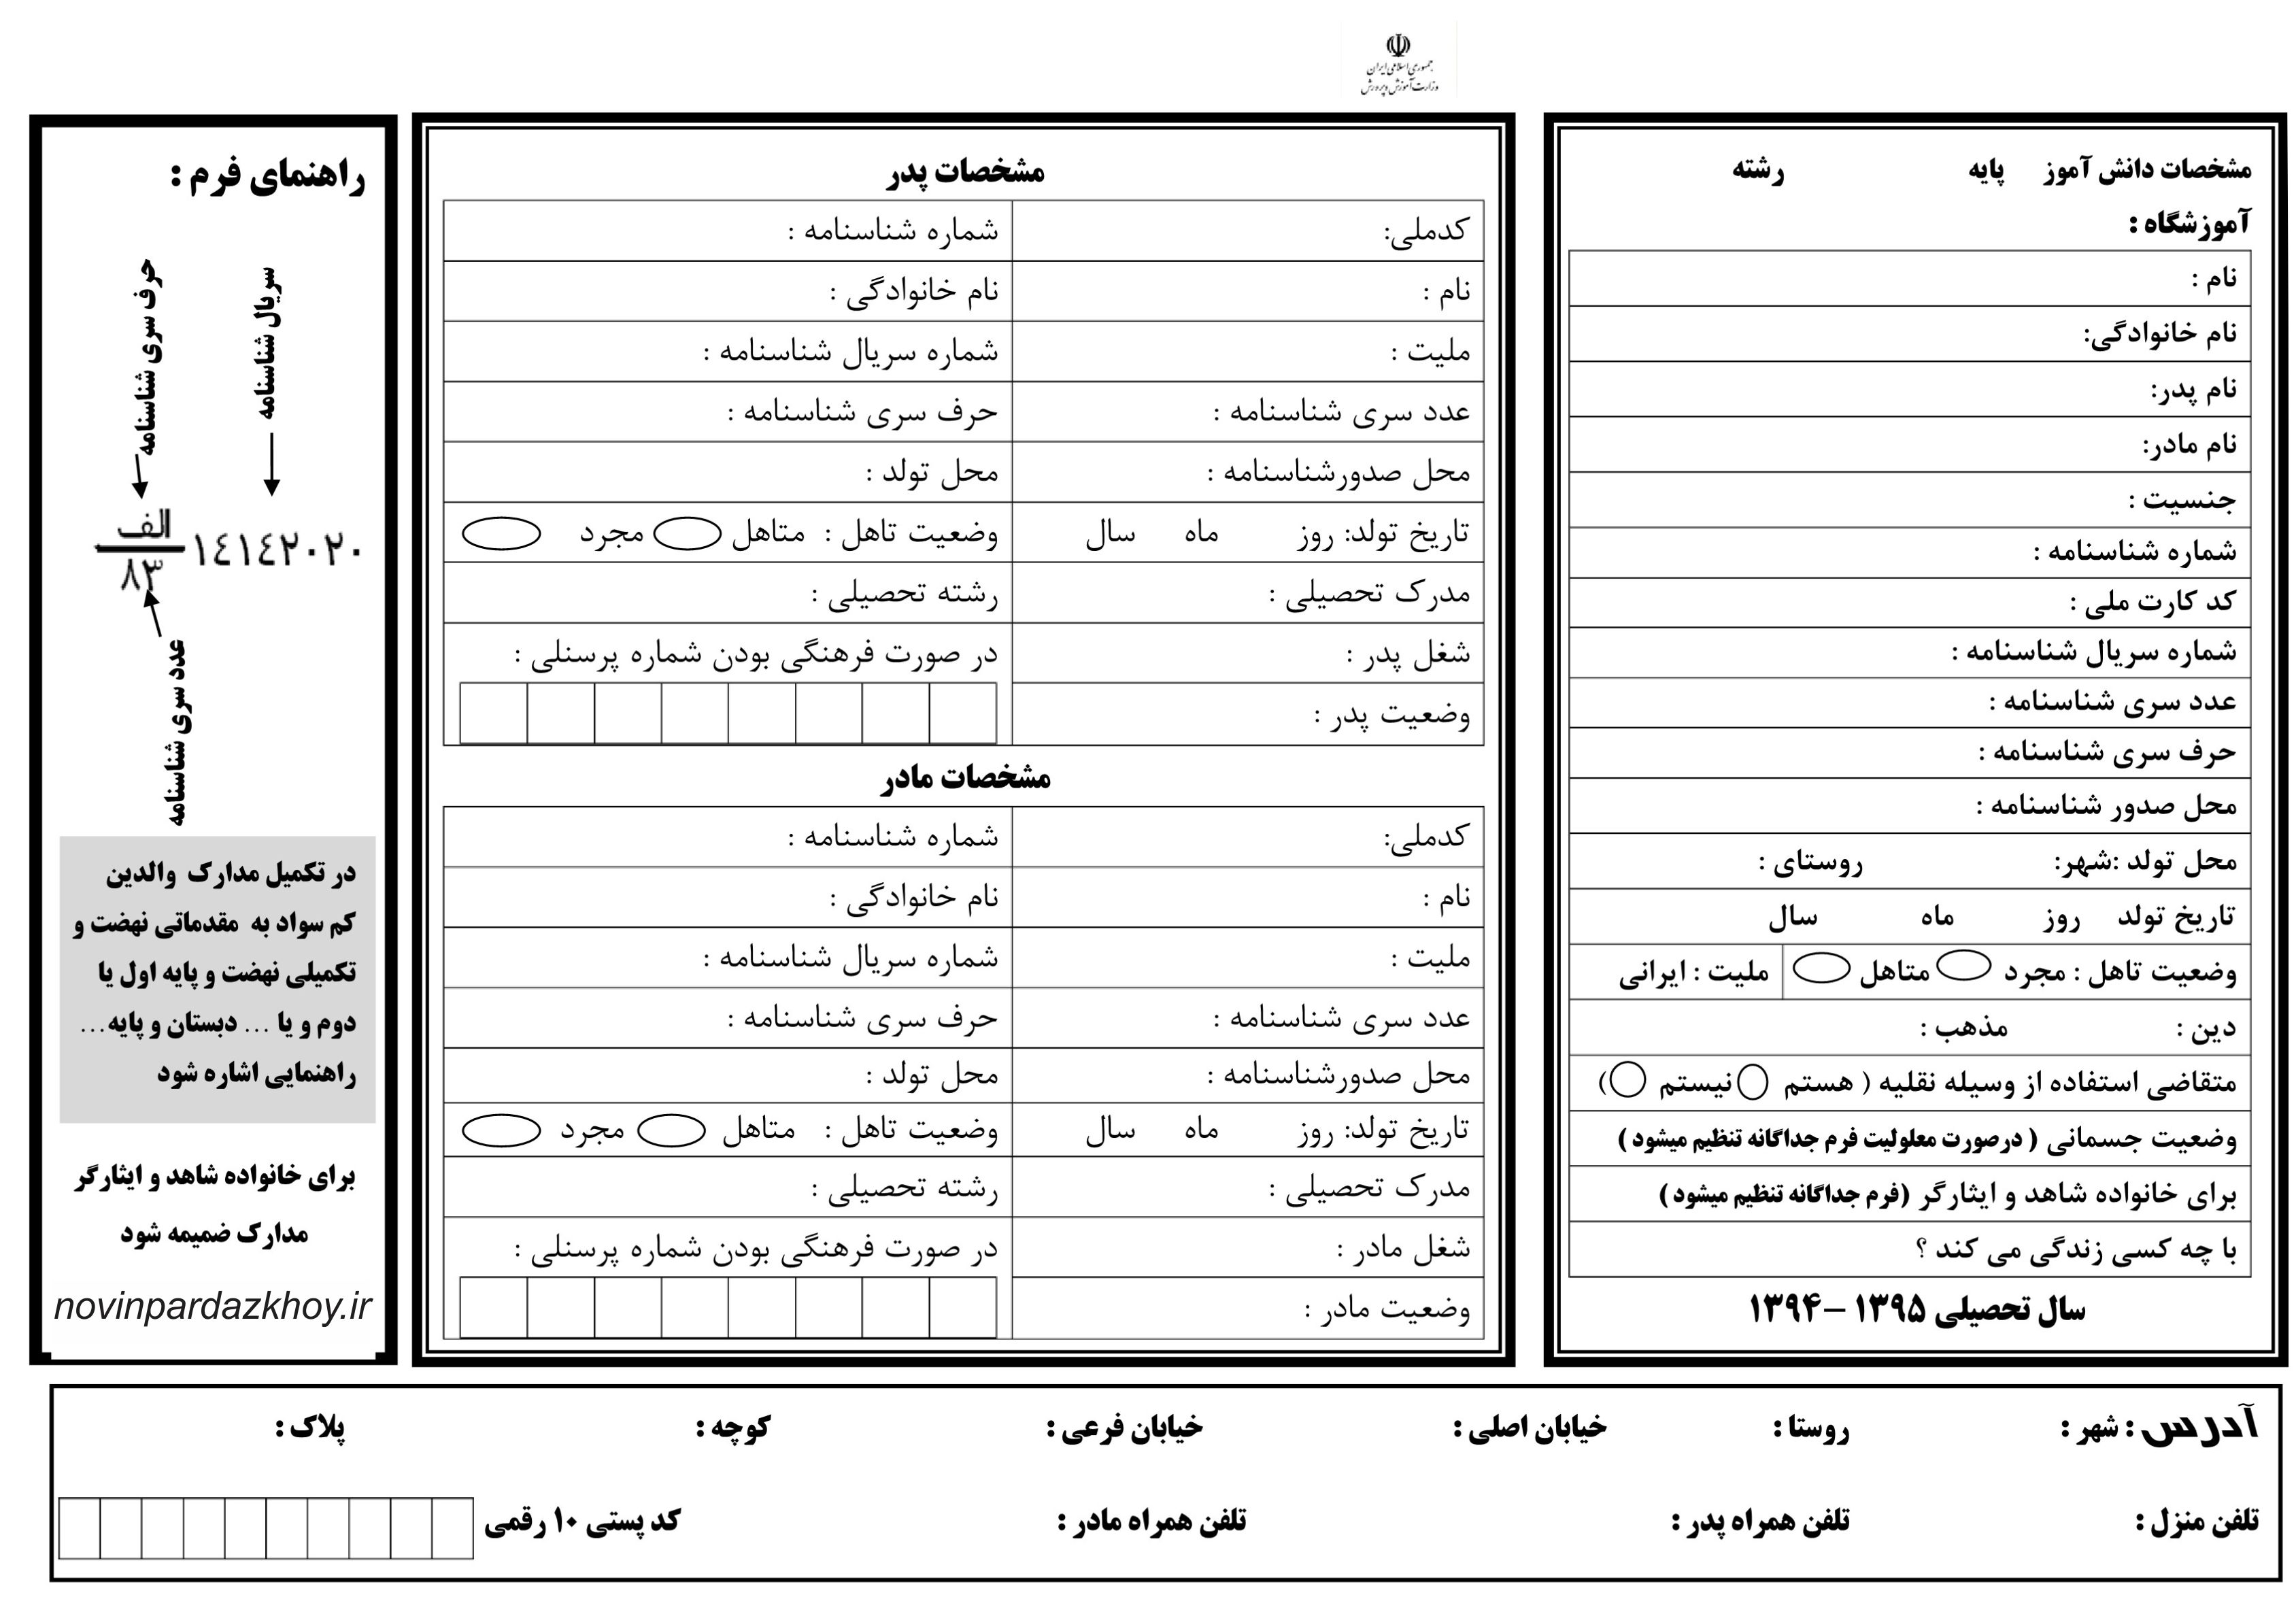 جمهوری اسلامی ایران
وزارت آموزش و پرورش
مشخصات دانش آموز پایه رشته
آموزشگاه :
نام :
نام خانوادگی:
نام پدر:
نام مادر:
جنسیت :
شماره شناسنامه :
کد کارت ملی :
شماره سریال شناسنامه :
عدد سری شناسنامه :
حرف سری شناسنامه :
محل صدور شناسنامه :
محل تولد :شهر: روستای :
تاریخ تولد روز ماه سال
وضعیت تاهل : مجرد متاهل ملیت : ایرانی
دین : مذهب :
متقاضی استفاده از وسیله نقلیه ( هستم نیستم )
وضعیت جسمانی ( درصورت معلولیت فرم جداگانه تنظیم میشود )
برای خانواده شاهد و ایثارگر (فرم جداگانه تنظیم میشود )
با چه کسی زندگی می کند ؟
سال تحصیلی ۱۳۹۵ – ۱۳۹۴
مشخصات پدر
کدملی: شماره شناسنامه :
نام : نام خانوادگی :
ملیت : شماره سریال شناسنامه :
عدد سری شناسنامه : حرف سری شناسنامه :
محل صدورشناسنامه : محل تولد :
تاریخ تولد: روز ماه سال وضعیت تاهل : متاهل مجرد
مدرک تحصیلی : رشته تحصیلی :
شغل پدر : در صورت فرهنگی بودن شماره پرسنلی :
وضعیت پدر :
مشخصات مادر
کدملی: شماره شناسنامه :
نام : نام خانوادگی :
ملیت : شماره سریال شناسنامه :
عدد سری شناسنامه : حرف سری شناسنامه :
محل صدورشناسنامه : محل تولد :
تاریخ تولد: روز ماه سال وضعیت تاهل : متاهل مجرد
مدرک تحصیلی : رشته تحصیلی :
شغل مادر : در صورت فرهنگی بودن شماره پرسنلی :
وضعیت مادر :
راهنمای فرم :
سریال شناسنامه
حرف سری شناسنامه
الف
١٤١٤٢٠٢٠
٨٣
عدد سری شناسنامه
در تکمیل مدارک والدین
کم سواد به مقدماتی نهضت و
تکمیلی نهضت و پایه اول یا
دوم و یا ... دبستان و پایه...
راهنمایی اشاره شود
برای خانواده شاهد و ایثارگر
مدارک ضمیمه شود
novinpardazkhoy.ir
آدرس : شهر : روستا : خیابان اصلی : خیابان فرعی : کوچه : پلاک :
تلفن منزل : تلفن همراه پدر : تلفن همراه مادر : کد پستی ۱۰ رقمی